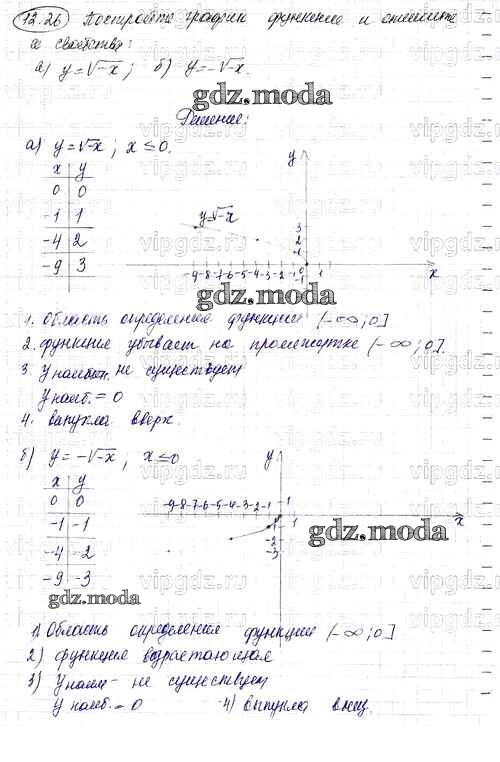 13.26 Построить график функции и опишите
х свойства:
а) y=√-x; б) y=-√-x.
gdz.moda
Решение:
а) y=√-x; x≤0.
x y
0 0
-1 1
-4 2
-9 3
y
y=√-x
3
2
1
-9-8-7-6-5-4-3-2-1 0 1
x
gdz.moda
1. Область определения функции (-∞;0]
2. функция убывает на промежутке (-∞;0].
3. у наиб. не существует
у наиб. = 0
4. выпукла вверх.
б) y=-√-x, x≤0
x y
0 0
-1 -1
-4 -2
-9 -3
y
-9-8-7-6-5-4-3-2-1 1
x
-1
-2
-3
gdz.moda
gdz.moda
1) Область определения функции (-∞;0]
2) функция возрастающая
3) у наим - не существует
у наиб. = 0 4) выпукла вниз.
vipgdz.ru